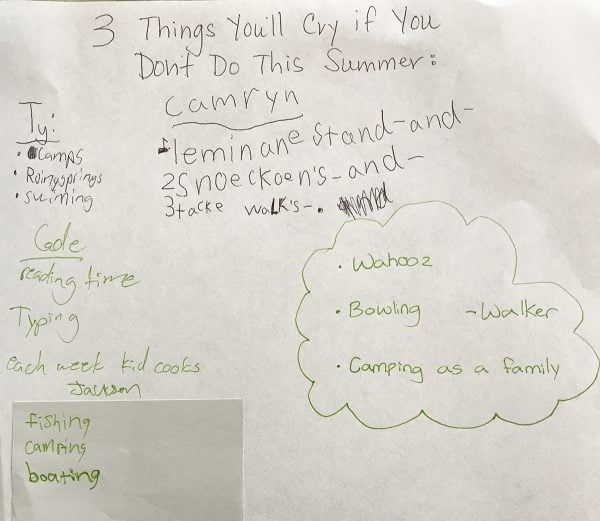 3 Things You'll Cry if You
Don't Do This Summer:
Ty:
• camps
• Roingsprings
• swiming
camryn
1 leminane stand-and-
2 snoeckoen's-and-
3 tacke walk's-.
Cade
reading time
Typing
each week kid cooks
Jackson
fishing
camping
boating
• Wahooz
• Bowling -Walker
• Camping as a family